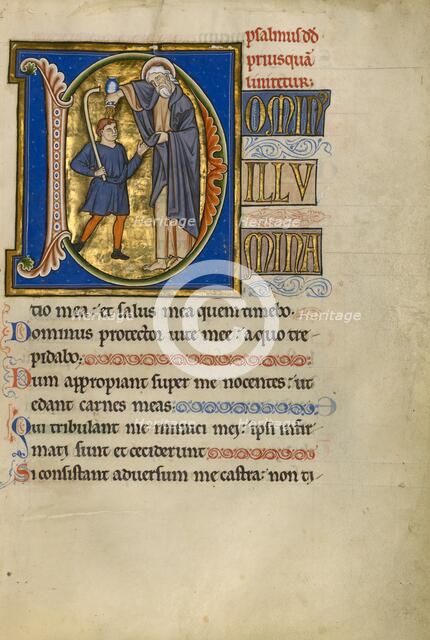 psalmus dd
priusquā
liniretur:
D
OMIN'
ILLV
MINA
tio mea: et salus mea quem timebo.
Dominus protector vite mee: a quo tre
pidabo:
Dum appropiant super me nocentes: ut
edant carnes meas:
Qui tribulant me inimici mei: ipsi infir
mati sunt et ceciderunt
Si consistant adversum me castra: non ti
Heritage
Heritage
Heritage
Heritage
Heritage